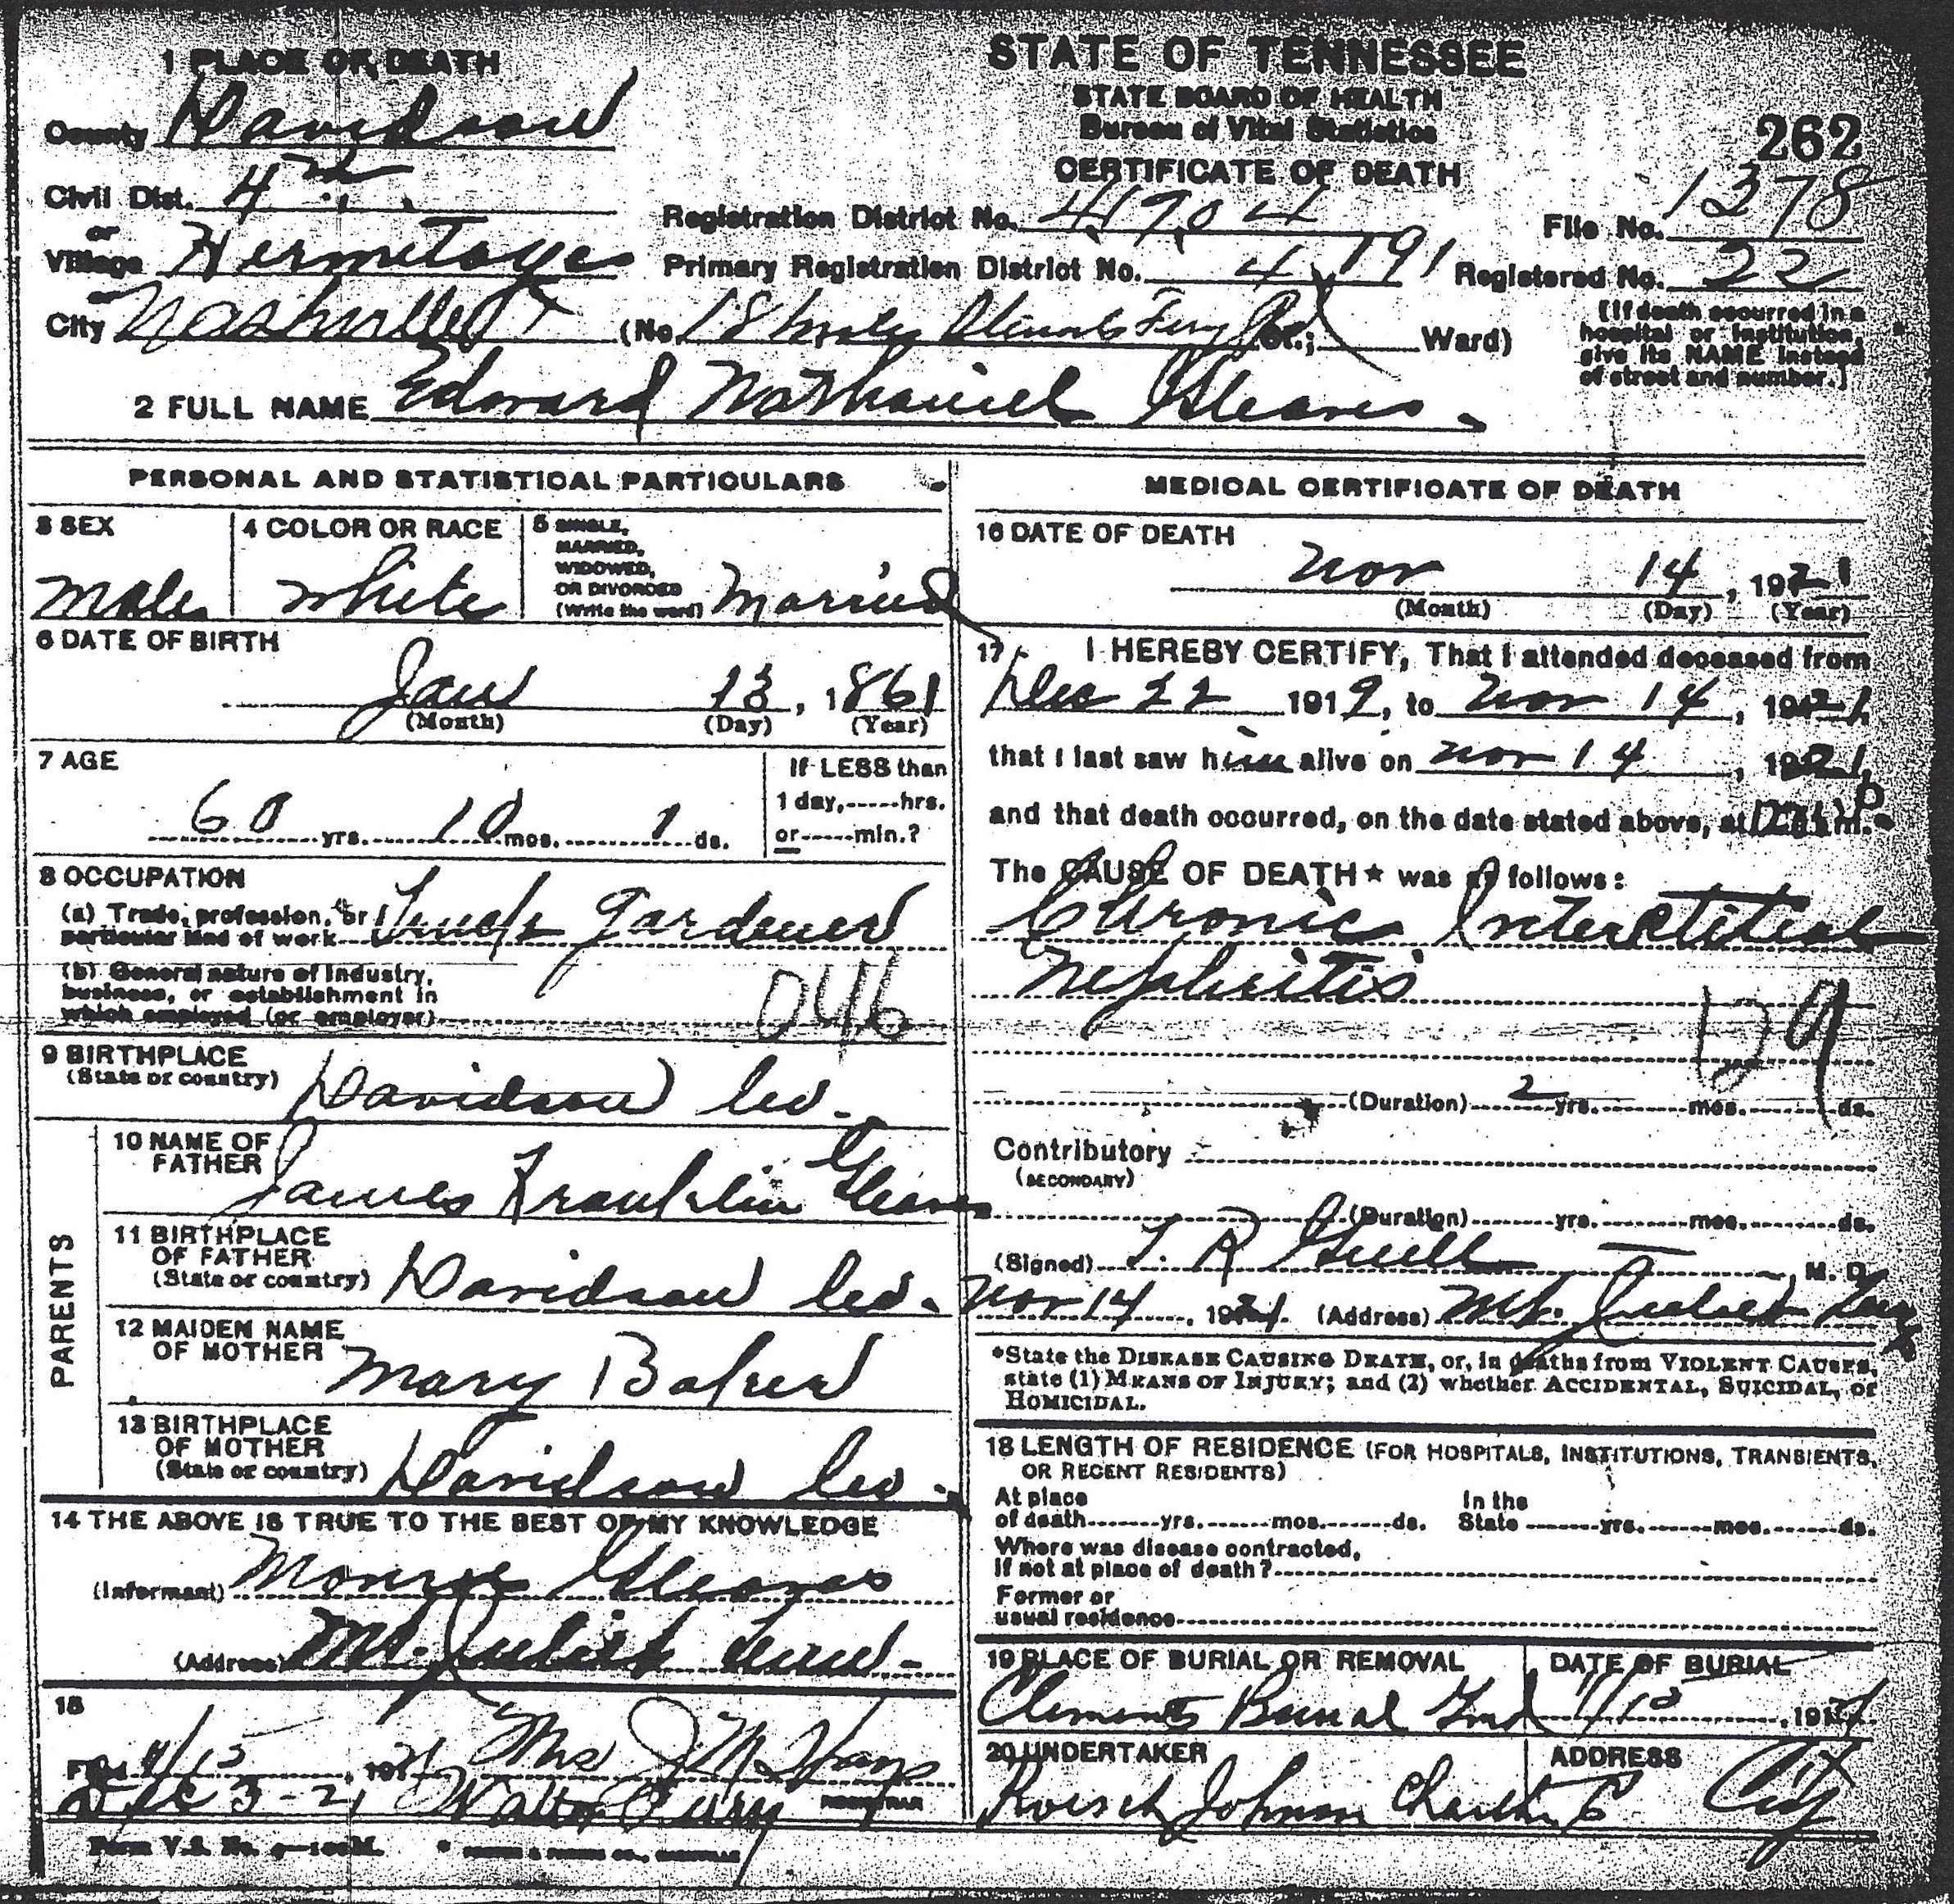 1 PLACE OF DEATH
County Davidson
Civil Dist. 4
or
Village Hermitage
or
City Nashville
STATE OF TENNESSEE
STATE BOARD OF HEALTH
Bureau of Vital Statistics
CERTIFICATE OF DEATH
262
Registration District No. 41904
File No. 1378
Primary Registration District No. 4191
Registered No. 22
(No. 18 St.; Ward)
[If death occurred in a
hospital or institution,
give its NAME instead
of street and number.]
2 FULL NAME Edward Nathaniel Gleaves.
PERSONAL AND STATISTICAL PARTICULARS
3 SEX
male
4 COLOR OR RACE
white
5 SINGLE,
MARRIED,
WIDOWED,
OR DIVORCED
(Write the word) Married
6 DATE OF BIRTH
Jan 13, 1861
(Month) (Day) (Year)
7 AGE
60 yrs. 10 mos. 1 ds.
If LESS than
1 day,-----hrs.
or-----min.?
8 OCCUPATION
(a) Trade, profession, or
particular kind of work Truck Gardener
(b) General nature of industry,
business, or establishment in
which employed (or employer)
046
9 BIRTHPLACE
(State or country) Davidson Co.
PARENTS
10 NAME OF
FATHER James Franklin Gleaves
11 BIRTHPLACE
OF FATHER
(State or country) Davidson Co.
12 MAIDEN NAME
OF MOTHER Mary Baker
13 BIRTHPLACE
OF MOTHER
(State or country) Davidson Co.
14 THE ABOVE IS TRUE TO THE BEST OF MY KNOWLEDGE
(Informant) Monroe Gleaves
(Address) Mt. Juliet Tenn.
15
Filed 11/15, 1921 Mrs J M
Dec 3-21 Walter
REGISTRAR
MEDICAL CERTIFICATE OF DEATH
16 DATE OF DEATH
Nov 14, 1921
(Month) (Day) (Year)
17 I HEREBY CERTIFY, That I attended deceased from
Dec 22 1919, to Nov 14, 1921,
that I last saw him alive on Nov 14, 1921,
and that death occurred, on the date stated above, at m.
The CAUSE OF DEATH* was as follows:
Chronic Interstitial
Nephritis
129
(Duration) 2 yrs. mos. ds.
Contributory
(SECONDARY)
(Duration) yrs. mos. ds.
(Signed) T. R. M. D.
Nov 14, 1921. (Address) Mt. Juliet Tenn
*State the DISEASE CAUSING DEATH, or, in deaths from VIOLENT CAUSES,
state (1) MEANS OF INJURY; and (2) whether ACCIDENTAL, SUICIDAL, or
HOMICIDAL.
18 LENGTH OF RESIDENCE (FOR HOSPITALS, INSTITUTIONS, TRANSIENTS,
OR RECENT RESIDENTS)
At place
of death-------yrs.------mos.------ds.
In the
State-------yrs.------mos.------ds.
Where was disease contracted,
if not at place of death?
Former or
usual residence
19 PLACE OF BURIAL OR REMOVAL
Clements Burial Grnd
DATE OF BURIAL
11/15, 1921
20 UNDERTAKER
Johnson
ADDRESS
City